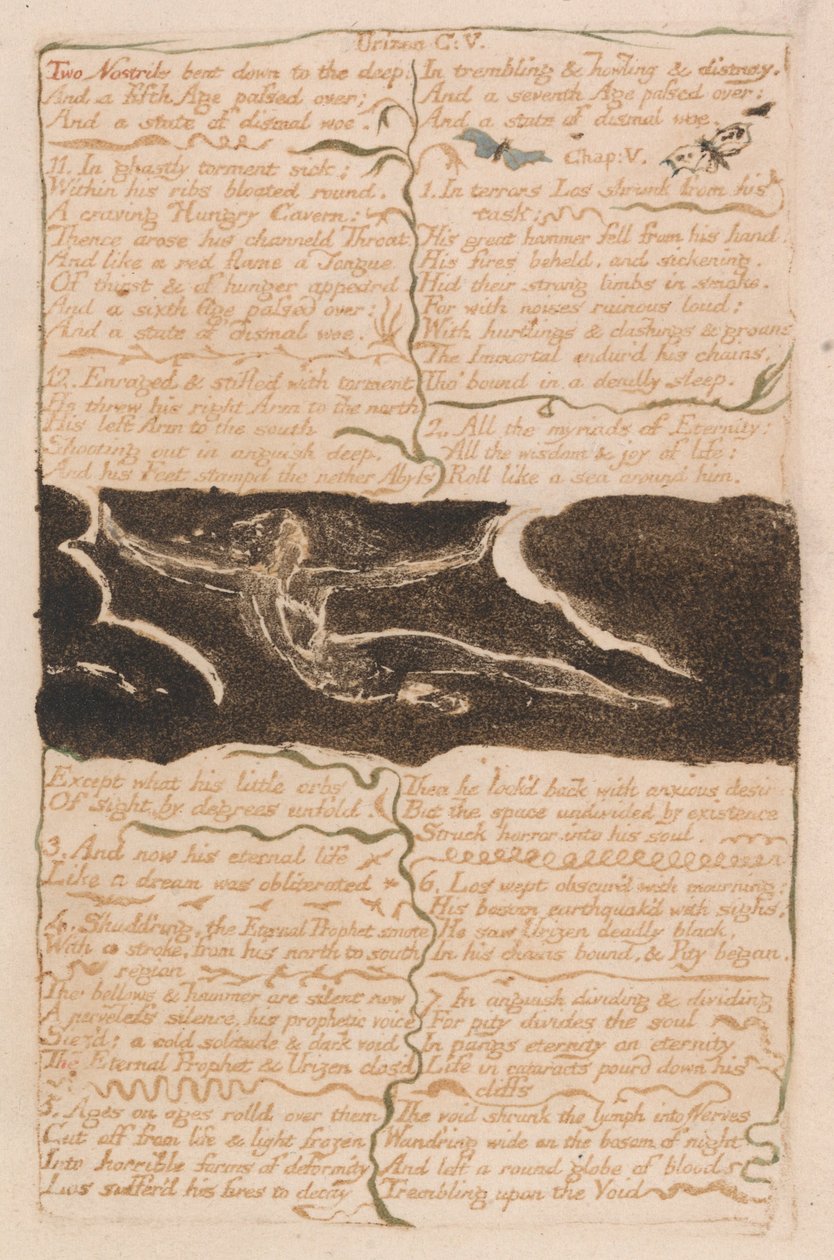 Urizen C: V.
Two Nostrils bent down to the deep.
And a fifth Age passed over;
And a state of dismal woe.
11. In ghastly torment sick;
Within his ribs bloated round.
A craving Hungry Cavern:
Thence arose his channeld Throat
And like a red flame a Tongue
Of thirst & of hunger appeard
And a sixth Age passed over:
And a state of dismal woe.
12. Enraged & stifled with torment
He threw his right Arm to the north
His left Arm to the south
Shooting out in anguish deep.
And his Feet stampd the nether Abyss
In trembling & howling & dismay.
And a seventh Age passed over:
And a state of dismal woe.
Chap: V.
1. In terrors Los shrunk from his
task:
His great hammer fell from his hand.
His fires beheld, and sickening.
Hid their strong limbs in smoke.
For with noises ruinous loud;
With hurtlings & clashings & groans
The Immortal endur'd his chains,
Tho' bound in a deadly sleep.
2. All the myriads of Eternity:
All the wisdom & joy of life:
Roll like a sea around him.
Except what his little orbs
Of sight by degrees unfold.
3. And now his eternal life
Like a dream was obliterated
4. Shudd'ring, the Eternal Prophet smote
With a stroke, from his north to south
region
The bellows & hammer are silent now
A nerveless silence, his prophetic voice
Siez'd; a cold solitude & dark void
The Eternal Prophet & Urizen clos'd
5. Ages on ages rolld over them
Cut off from life & light frozen
Into horrible forms of deformity
Los suffer'd his fires to decay
Then he look'd back with anxious desire
But the space undivided by existence
Struck horror into his soul.
6. Los wept obscur'd with mourning:
His bosom earthquak'd with sighs.
He saw Urizen deadly black,
In his chains bound, & Pity began.
7. In anguish dividing & dividing
For pity divides the soul
In pangs eternity on eternity
Life in cataracts pourd down his
cliffs
The void shrunk the lymph into Nerves
Wand'ring wide on the bosom of night
And left a round globe of blood
Trembling upon the Void